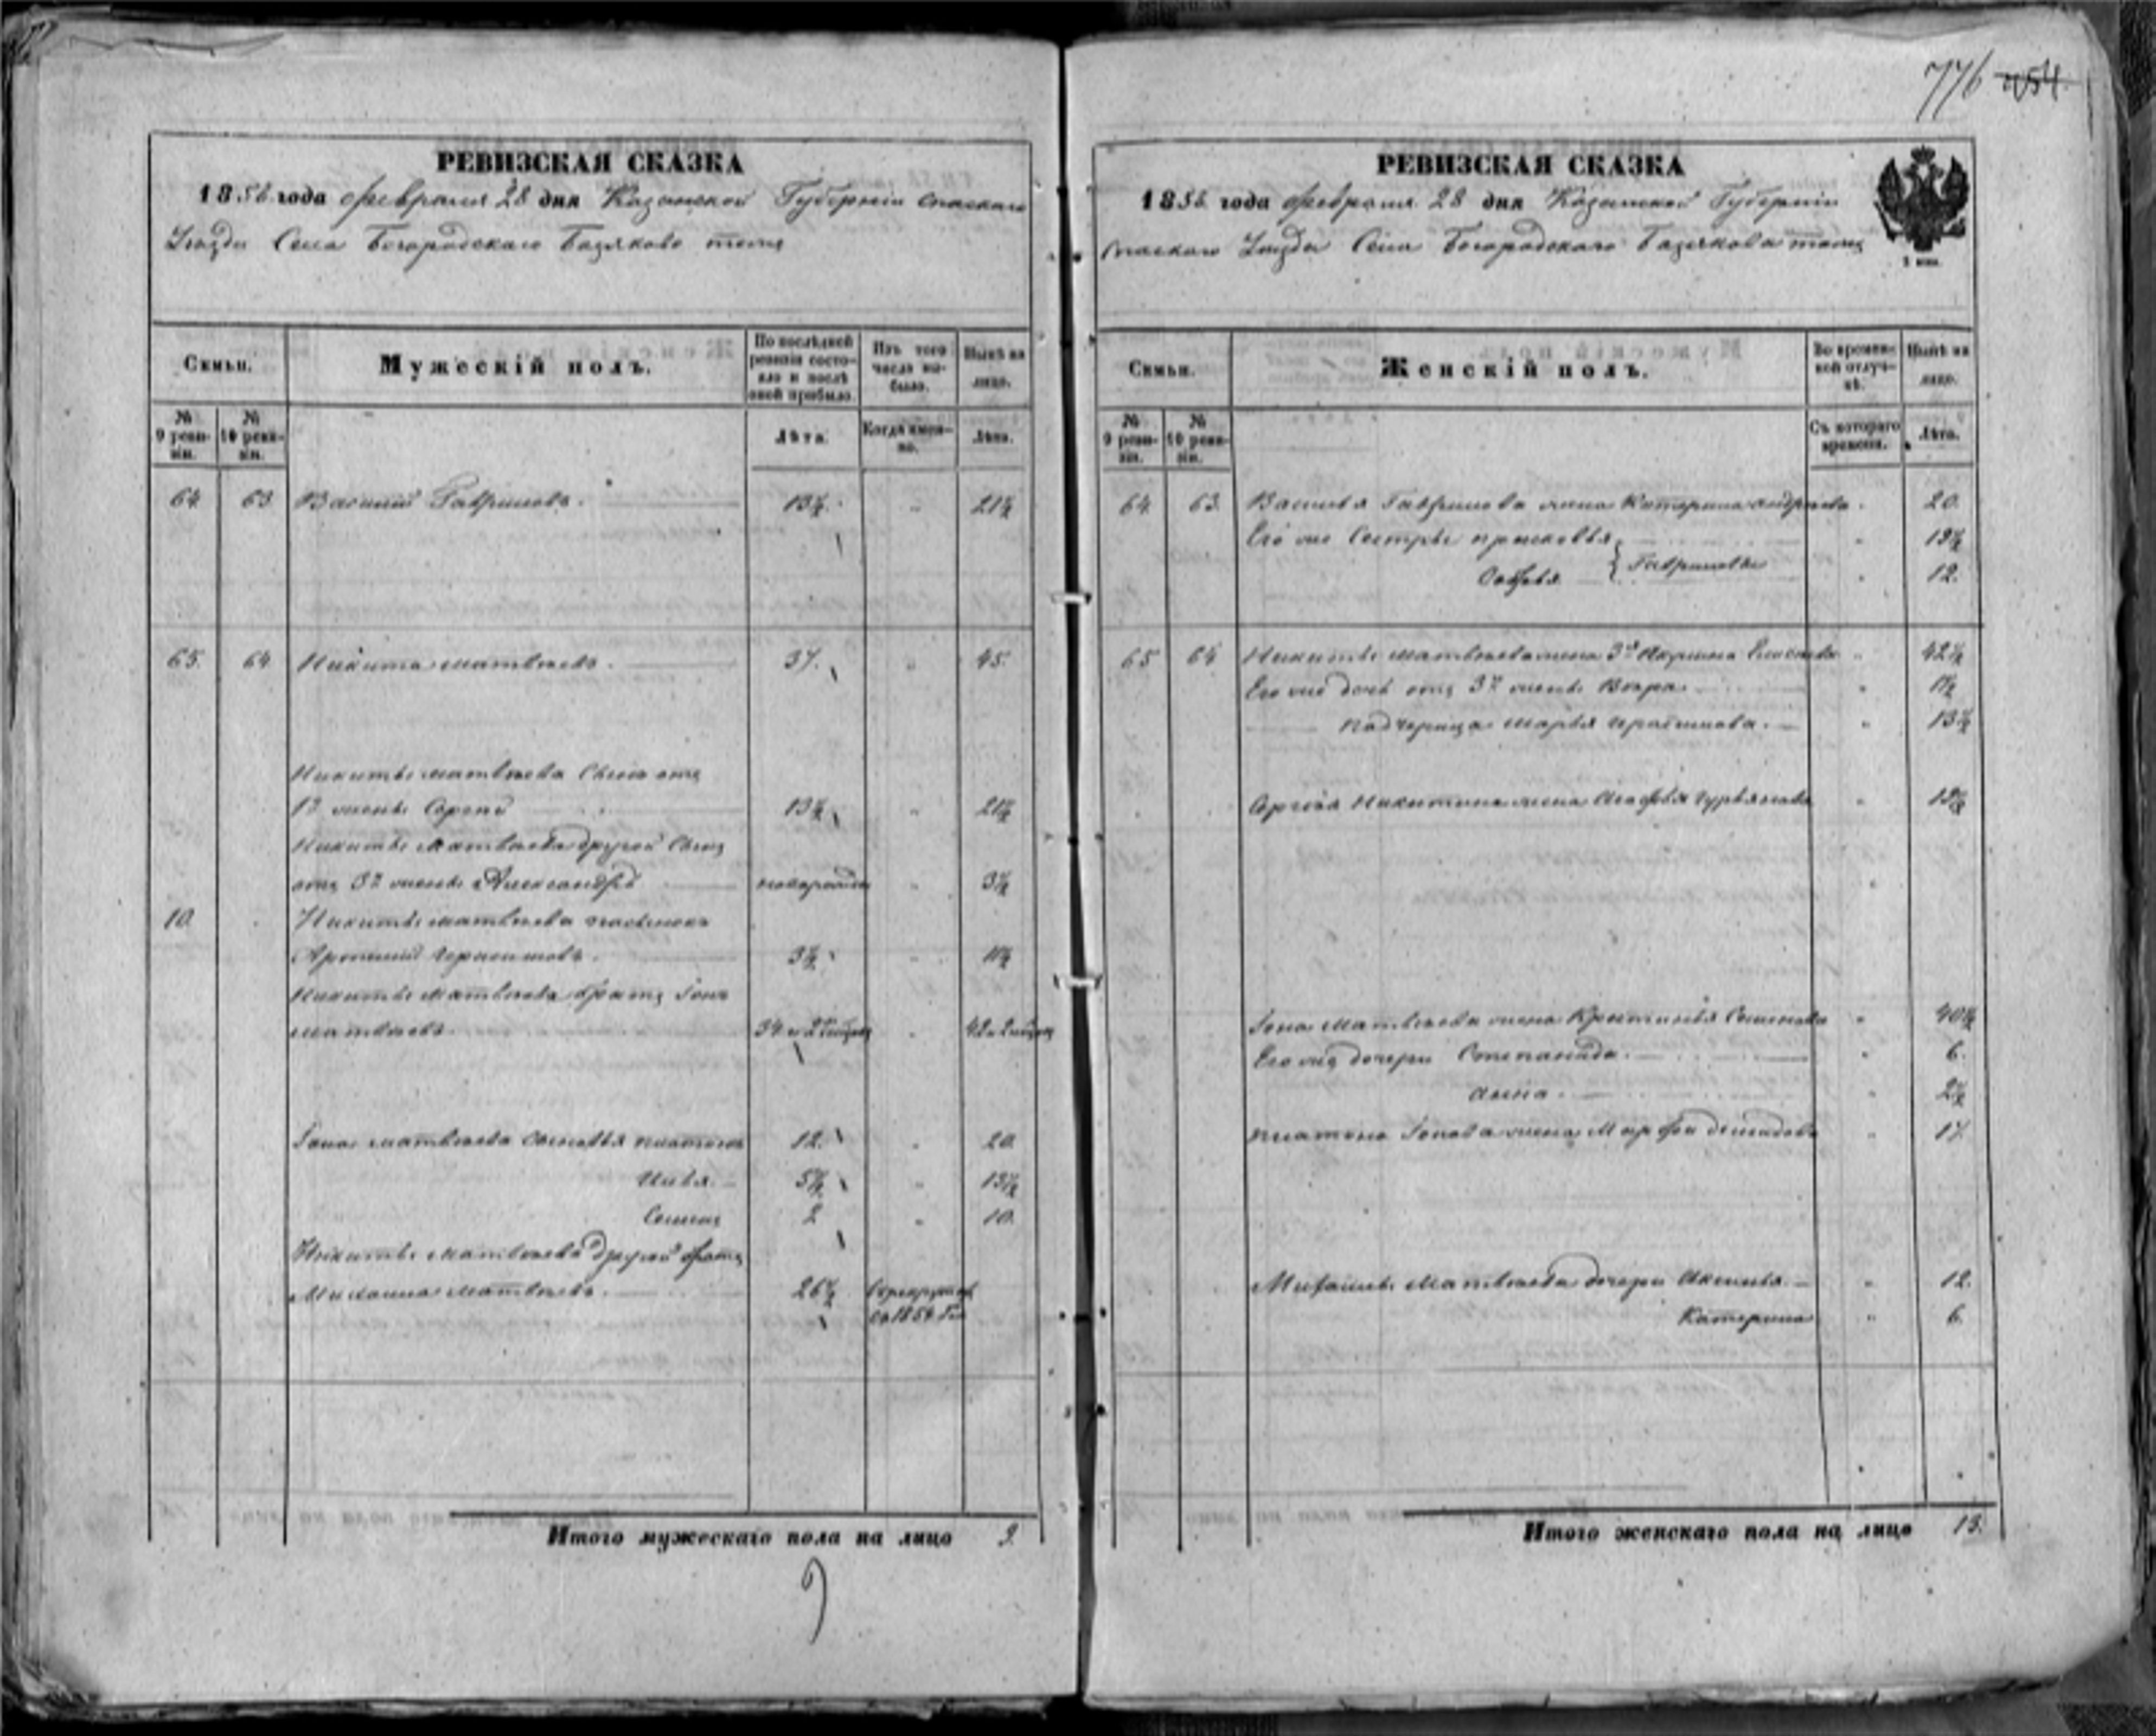 776 454
РЕВИЗСКАЯ СКАЗКА
1856 года февраля 28 дня Казанской Губерніи Спаскаго
Уѣзда Села Богородскаго Базяково тожъ
Семьи.
Мужескій полъ.
По послѣдней ревизіи состояло и послѣ оной прибыло.
Изъ того числа выбыло.
Нынѣ на лицо.
№ 9 ревизіи.
№ 10 ревизіи.
Лѣта.
Когда именно.
Лѣта.
64 63 Василій Гавриловъ. 13½ " 21½
65. 64 Никита Матвѣевъ. 37. " 45.
Никиты Матвѣева Сынъ отъ
1й жены Сергей 13½ " 21½
Никиты Матвѣева другой Сынъ
отъ 3й жены Александръ новорожден " 3½
10. Никиты Матвѣева пасынокъ
Артемій Герасимовъ. 3½ " 11½
Никиты Матвѣева братъ Іона
Матвѣевъ. 34 и 2 " 42 и 2
Іоны Матвѣева Сыновья Платонъ 12. " 20.
Илья. 5½ " 13½
Семенъ 2 " 10.
Никиты Матвѣева другой братъ
Михаила Матвѣевъ. 26½ въ рекрутах
съ 1854 Го
Итого мужескаго пола на лицо 9.
9
РЕВИЗСКАЯ СКАЗКА
1856 года февраля 28 дня Казанской Губерніи
Спаскаго Уѣзда Села Богородскаго Базякова тожъ
Семьи.
Женскій полъ.
Во временной отлучкѣ.
Нынѣ на лицо.
№ 9 ревизіи.
№ 10 ревизіи.
Съ котораго времени.
Лѣта.
64. 63. Василья Гаврилова жена Катерина Андреева " 20.
Его же Сестры Прасковья } Гавриловы " 19½
Софья " 12.
65 64 Никиты Матвѣева жена 3я Акулина " 42½
Его же дочь отъ 3й жены " 1½
Падчерица Марья Герасимова. " 13½
Сергѣя Никитина жена Агафья Гурьянова " 19½
Іоны Матвѣева жена Семенова " 40½
Его же дочери Степанида. " 6.
Анна. " 2½
Платона Іонова жена Марфа Демидова " 17.
Михаилы Матвѣева дочери Аксинья " 12.
Катерина " 6.
Итого женскаго пола на лицо 13.